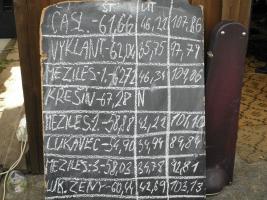 ČASL.-61,66 46,22 107,86
VYKLANT-62,04 35,75 97,79
MEZILES-1-62,72 46,34 109,06
KŘEŠÍN-67,28 N
MEZILES-2-58,88 42,22 101,10
LUKAVEC-54,90 34,94 89,84
MEZILES-3-58,03 34,78 92,81
LUK.ŽENY-60,44 42,69 103,13